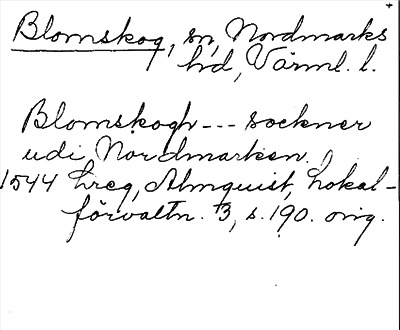 Blomskog, sn, Nordmarks
hd, Värml. l.
Blomskogh --- sockner
udi Nordmarken.
1544 Lreg, Almquist, Lokal-
förvaltn. 3, s. 190. orig.